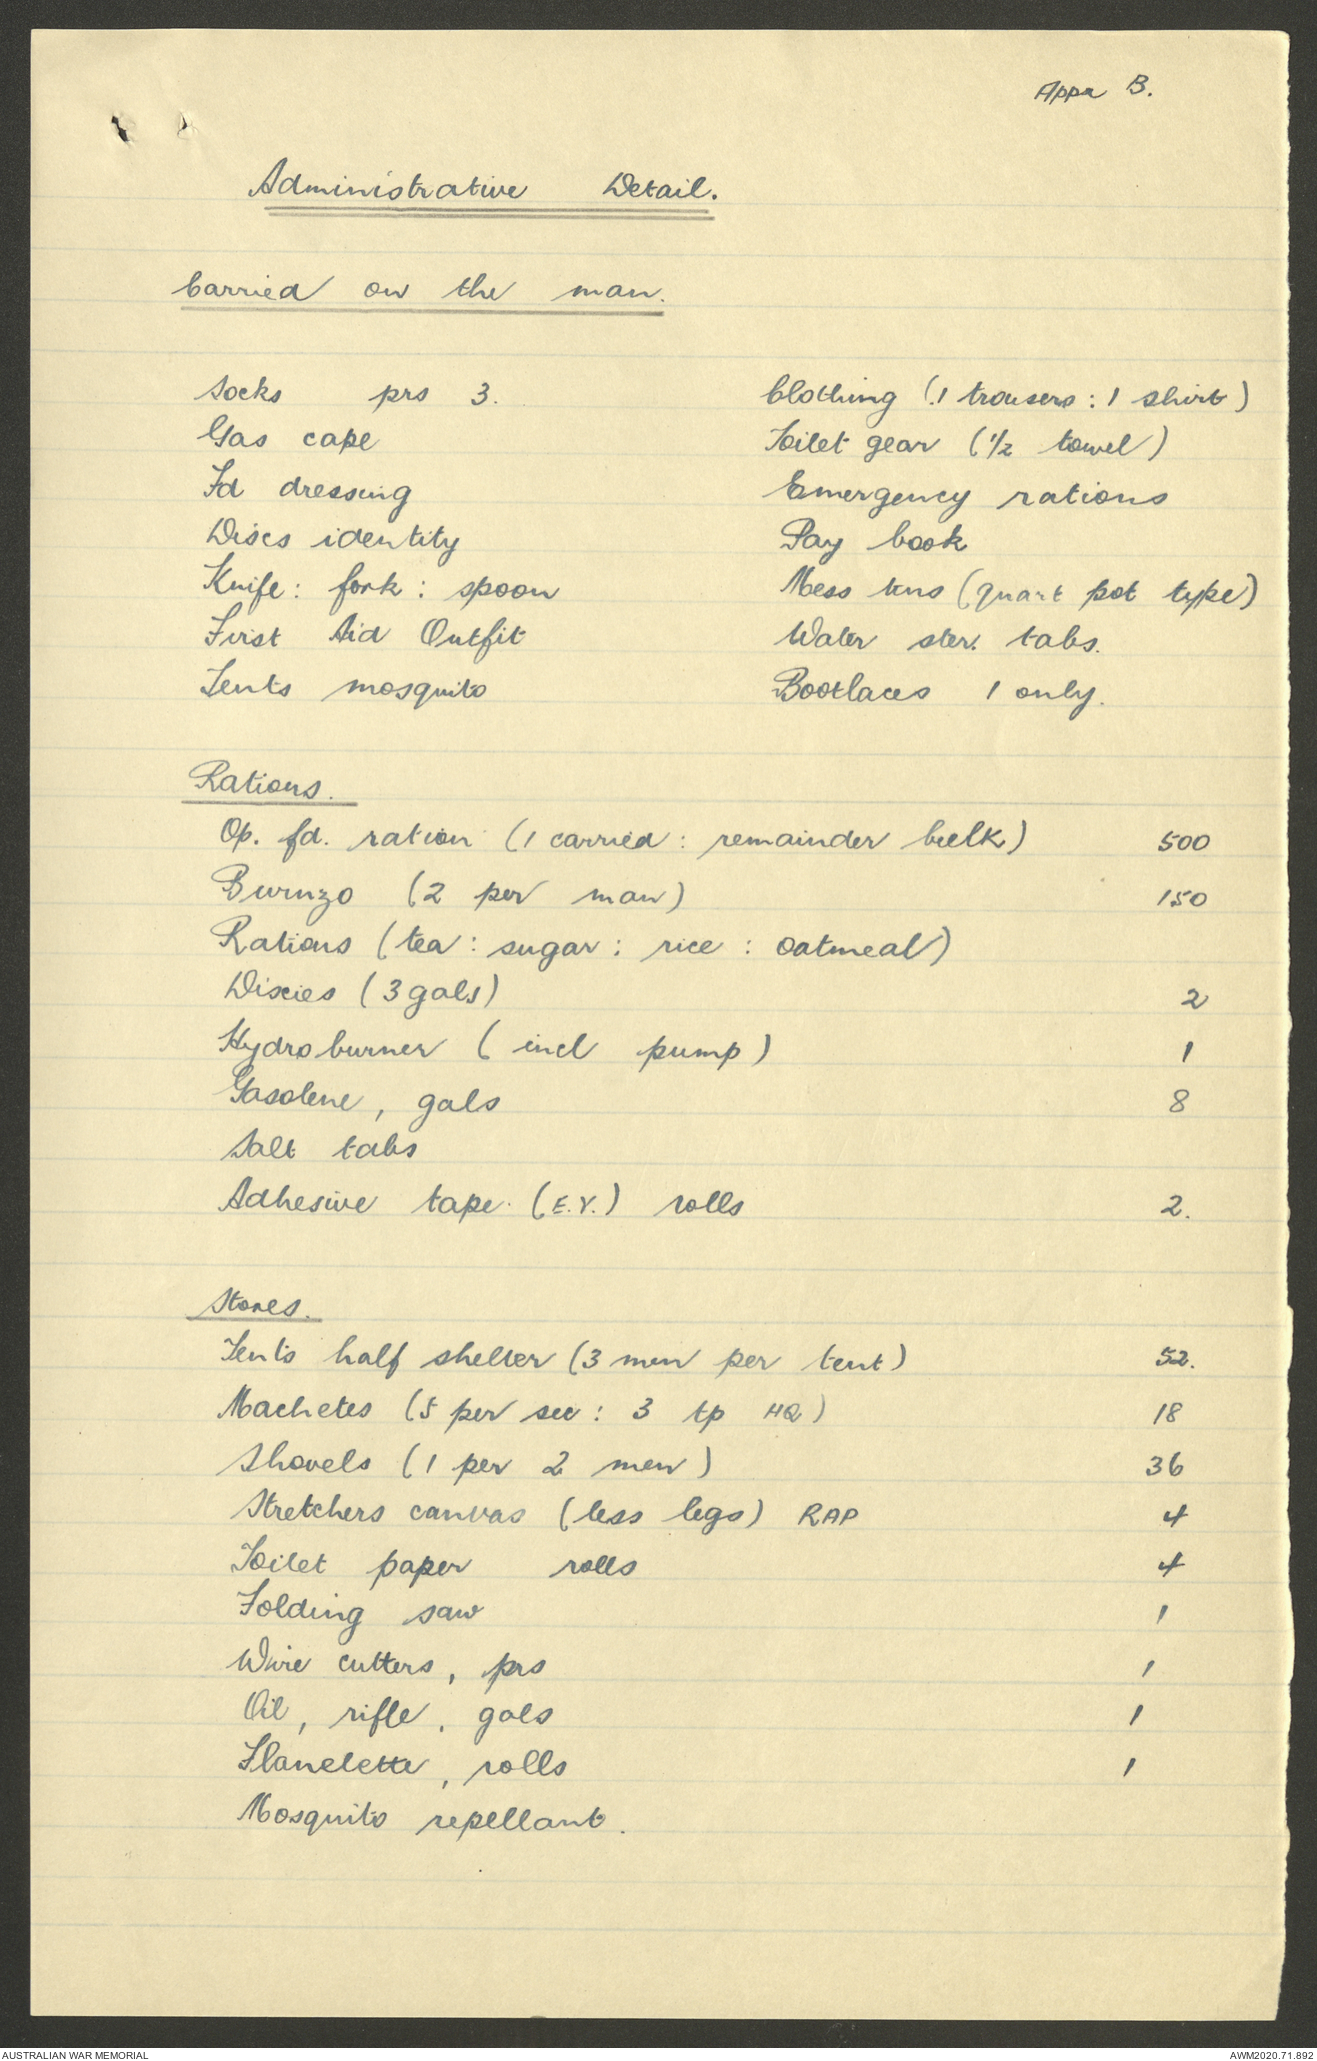 Appx B.
Administrative Detail.
Carried on the man.
Socks prs 3.
Gas cape
Fd dressing
Discs identity
Knife : fork : spoon
First Aid Outfit
Tents mosquito
Clothing (1 trousers : 1 shirt)
Toilet gear (1/2 towel)
Emergency rations
Pay book
Mess tins (quart pot type)
Water ster. tabs.
Bootlaces 1 only.
Rations.
Op. fd. ration (1 carried : remainder bulk) 500
Burnzo (2 per man) 150
Rations (tea : sugar : rice : oatmeal)
Dixies (3 gals) 2
Hydroburner (incl pump) 1
Gasolene, gals 8
Salt tabs
Adhesive tape (E.Y.) rolls 2.
Stores.
Tents half shelter (3 men per tent) 52.
Machetes (5 per sec : 3 tp HQ) 18
Shovels (1 per 2 men) 36
Stretchers canvas (less legs) RAP 4
Toilet paper rolls 4
Folding saw 1
Wire cutters, prs 1
Oil, rifle, gals 1
Flanelette, rolls 1
Mosquito repellant.
AUSTRALIAN WAR MEMORIAL
AWM2020.71.892